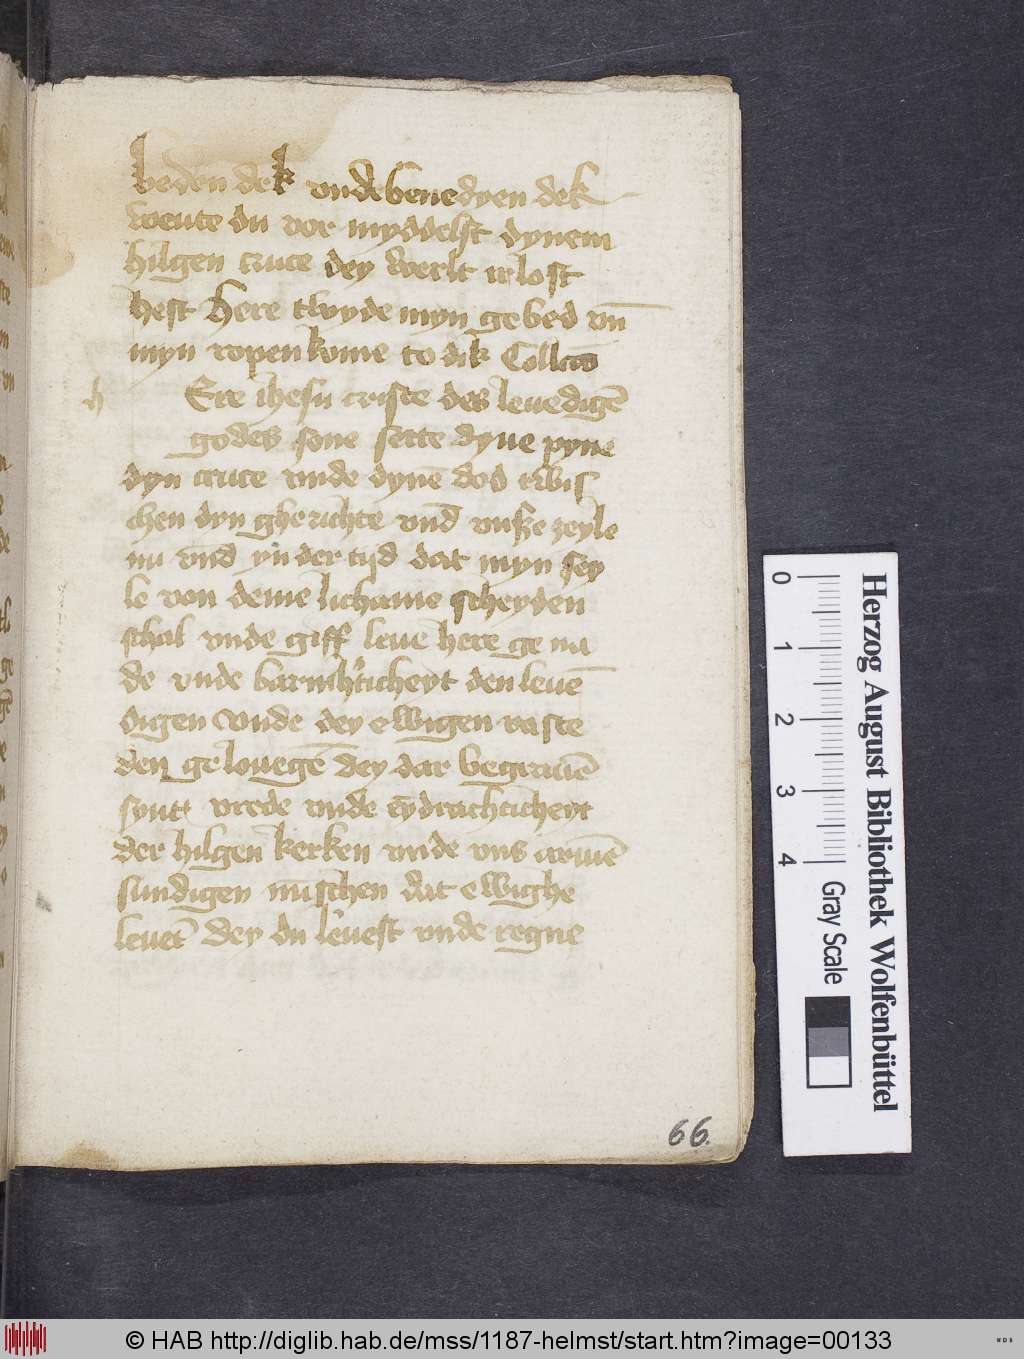 beden dek vnde benedyen dek
wente du vor myddelst dynem
hilgen cruce dey werlt irlost
hest Here twyde myn gebed vn̄
myn ropen kome to dik Collcō
h Ere ihesu criste des leuedigē
godes sone sette dyne pyne
dyn cruce vnde dynē dod twis
chen dyn gherichte vn̄d vnsze zeyle
nu vn̄d yn der tijd dat myn sey
le von deme lichame scheyden
schal vnde giff leue here gena
de vnde barmh'ticheyt den leuē
digen vnde dey ewigen raste
den gelouegē dey dar begrauē
synt vrede vnde eȳdrachticheyt
der hilgen kerken vnde vns armē
sundigen mīschen dat ewighe
leuēt dey du leuest vnde regne
66.
0 1 2 3 4
Gray Scale
Herzog August Bibliothek Wolfenbüttel
© HAB http://diglib.hab.de/mss/1187-helmst/start.htm?image=00133